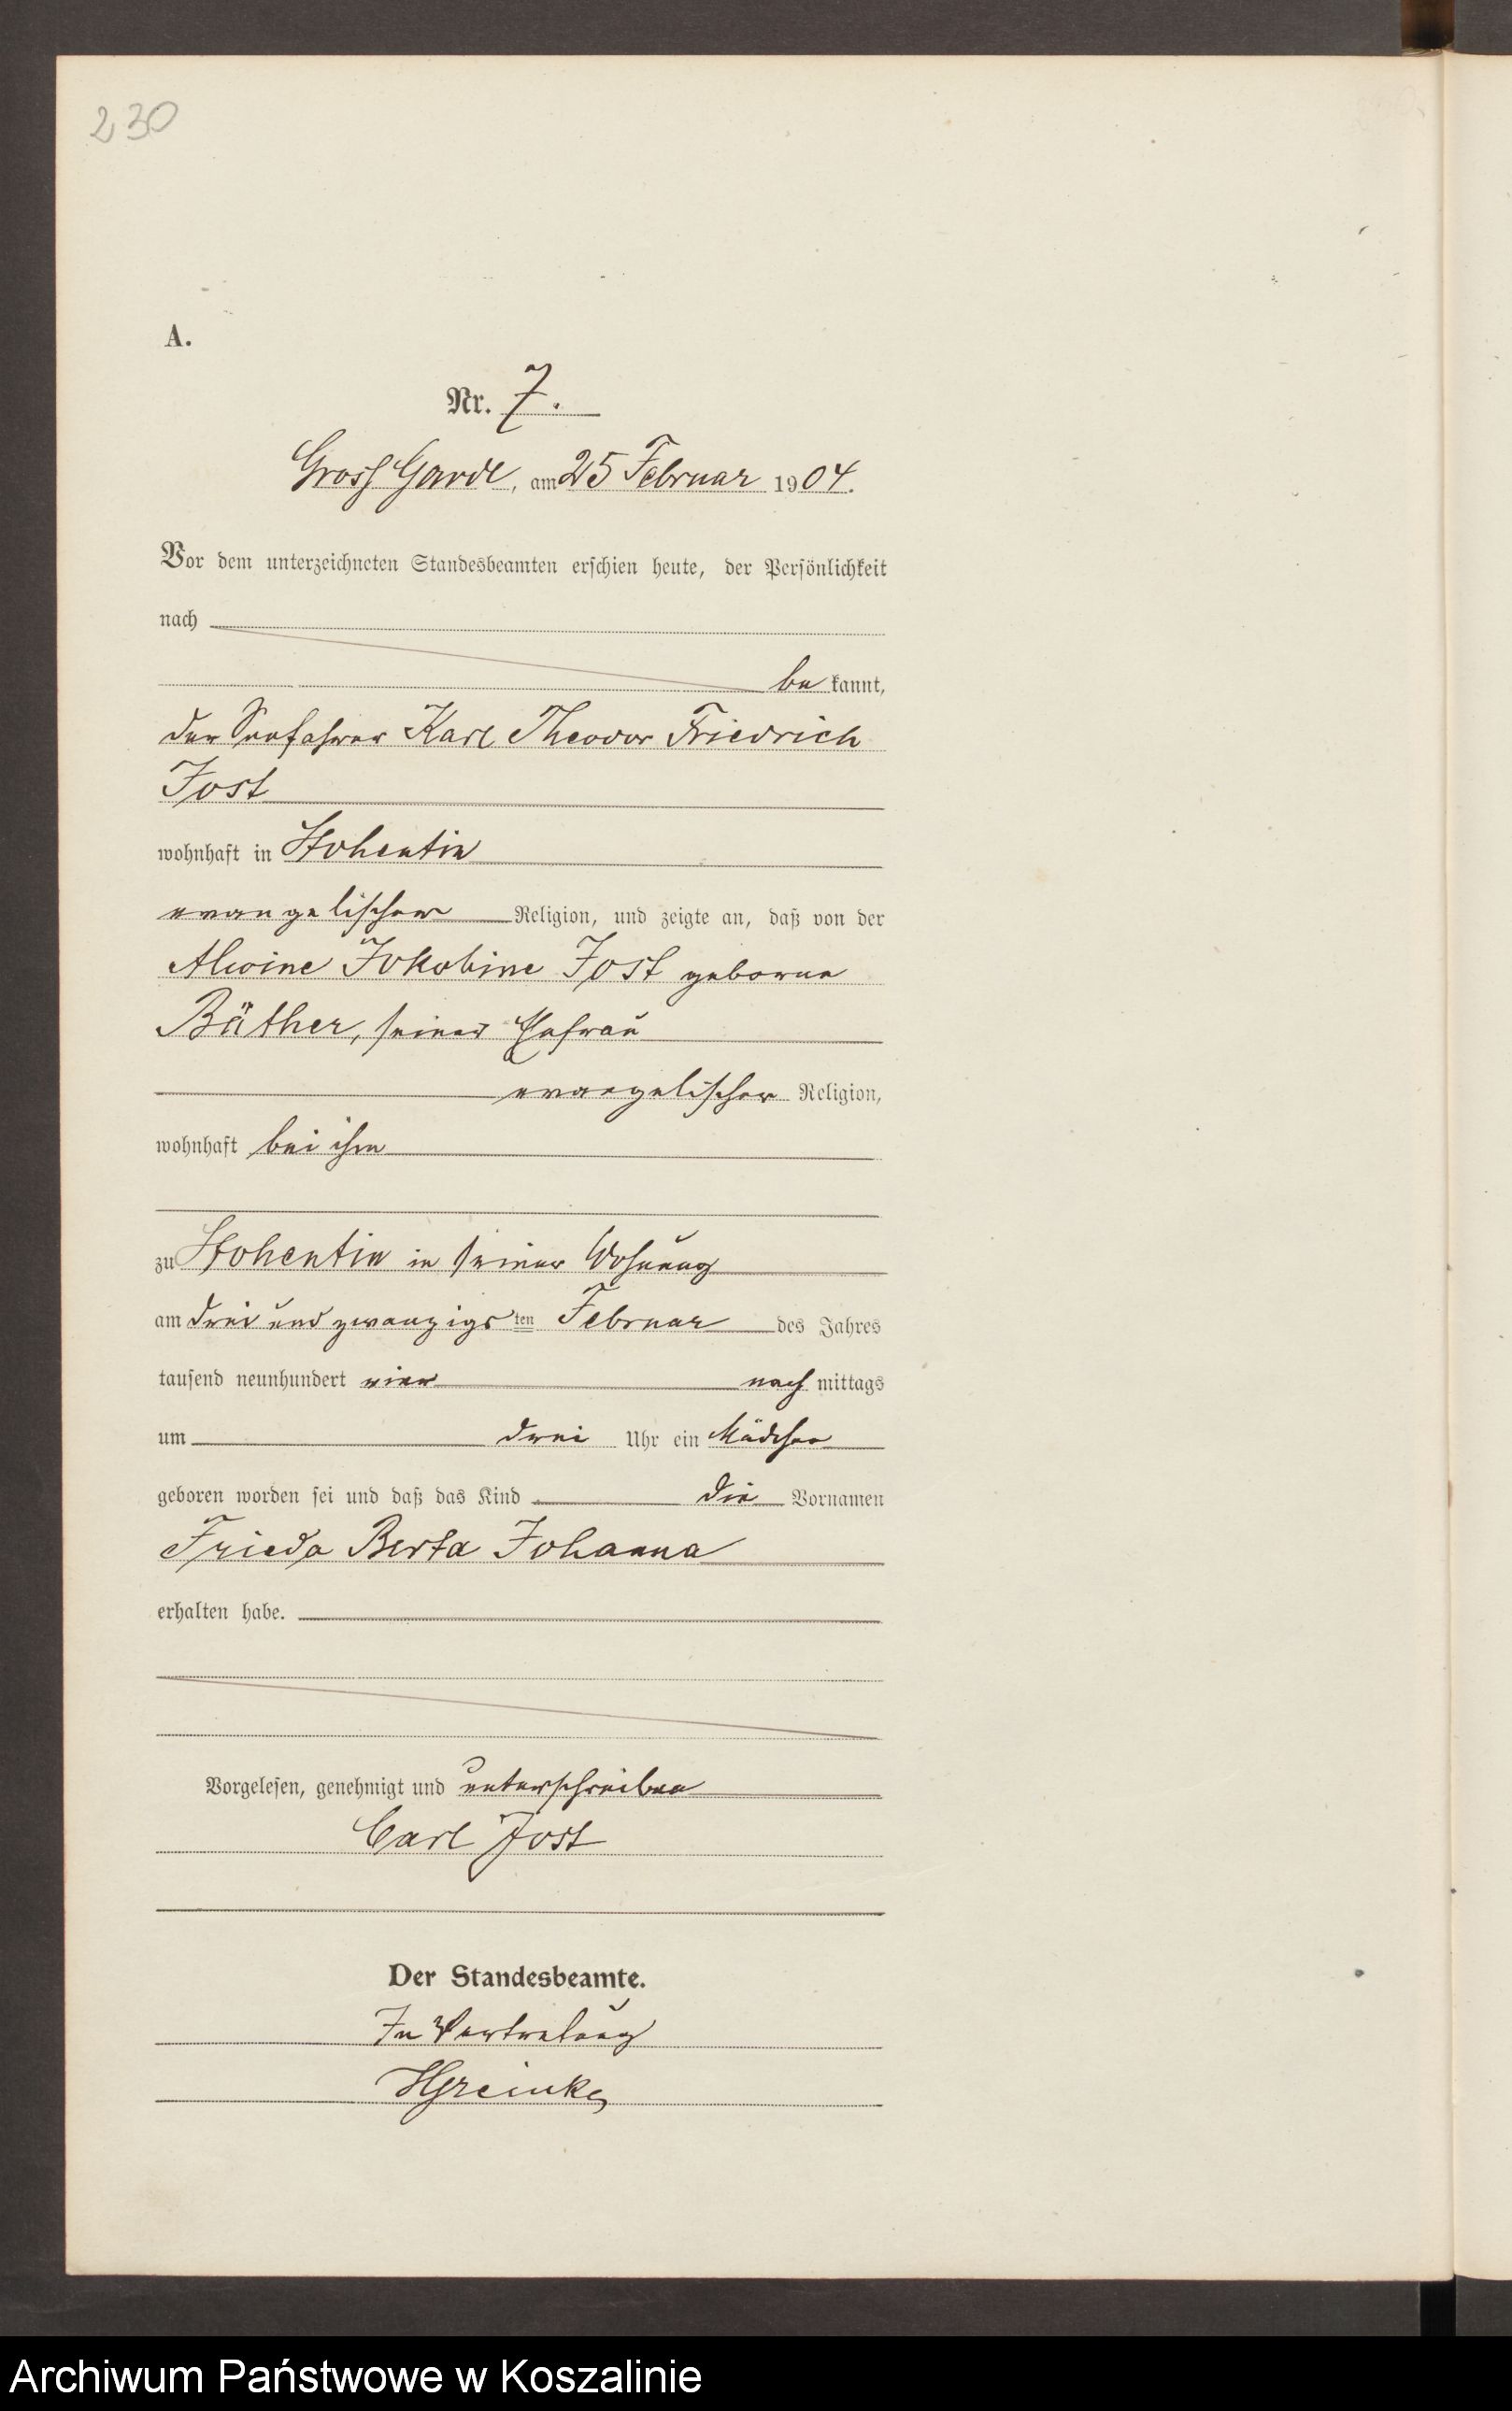 230
A.
Nr. 7.
Gross Garde, am 25 Februar 1904.
Vor dem unterzeichneten Standesbeamten erschien heute, der Persönlichkeit
nach
be kannt,
der Seefahrer Karl Theodor Friedrich
Jost
wohnhaft in Stohentin
evangelischer Religion, und zeigte an, daß von der
Alwine Jakobine Jost geborne
Bäther, seiner Ehefrau
evangelischer Religion,
wohnhaft bei ihm
zu Stohentin in seiner Wohnung
am drei und zwanzigs ten Februar des Jahres
tausend neunhundert vier nach mittags
um drei Uhr ein Mädchen
geboren worden sei und daß das Kind die Vornamen
Frieda Berta Johanna
erhalten habe.
Vorgelesen, genehmigt und unterschrieben
Carl Jost
Der Standesbeamte.
In Vertretung
HGreinke
Archiwum Państwowe w Koszalinie